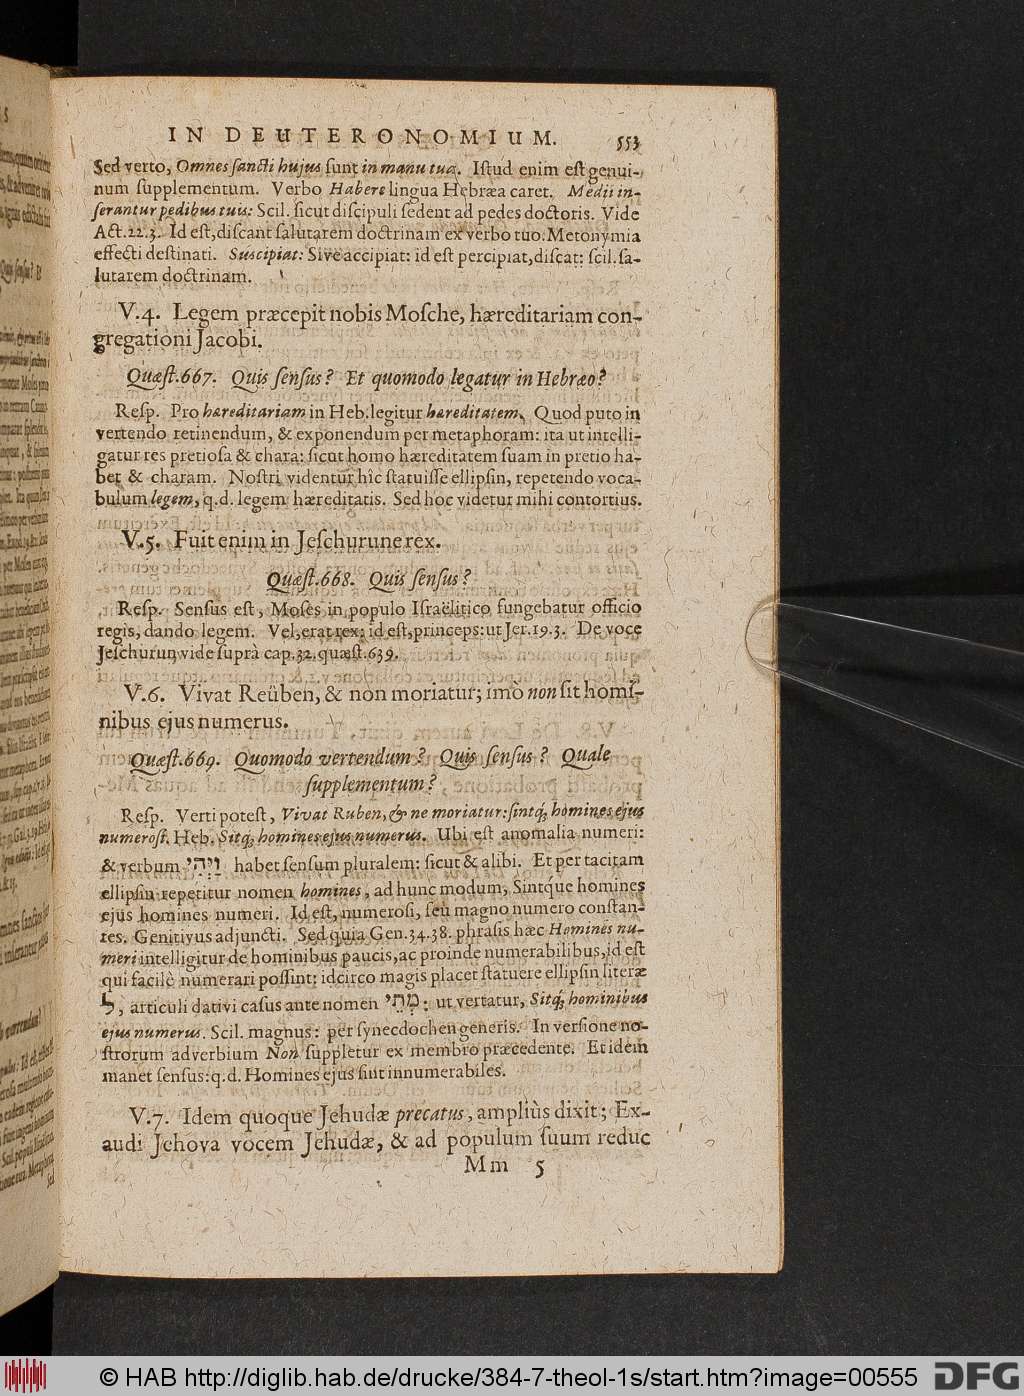 IN DEUTERONOMIUM. 553
Sed verto, Omnes ſancti hujus ſunt in manu tua. Iſtud enim eſt genui-
num ſupplementum. Verbo Habere lingua Hebræa caret. Medii in-
ſerantur pedibus tuis: Scil. ſicut diſcipuli ſedent ad pedes doctoris. Vide
Act.22.3. Id eſt, diſcant ſalutarem doctrinam ex verbo tuo. Metonymia
effecti deſtinati. Suscipiat: Sive accipiat: id eſt percipiat, diſcat: ſcil. ſa-
lutarem doctrinam.
V.4. Legem præcepit nobis Moſche, hæreditariam con-
gregationi Jacobi.
Quæſt.667. Quis ſenſus? Et quomodo legatur in Hebræo?
Reſp. Pro hæreditariam in Heb. legitur hæreditatem. Quod puto in
vertendo retinendum, & exponendum per metaphoram: ita ut intelli-
gatur res pretioſa & chara: ſicut homo hæreditatem ſuam in pretio ha-
bet & charam. Noſtri videntur hîc ſtatuiſſe ellipſin, repetendo voca-
bulum legem, q.d. legem hæreditatis. Sed hoc videtur mihi contortius.
V.5. Fuit enim in Jeſchurune rex.
Quæſt.668. Quis ſenſus?
Reſp. Senſus eſt, Moſes in populo Iſraëlitico fungebatur officio
regis, dando legem. Vel, erat rex: id eſt, princeps: ut Jer.19.3. De voce
Jeſchurun vide ſuprà cap.32. quæſt.639.
V.6. Vivat Reüben, & non moriatur; imò non ſit homi-
nibus ejus numerus.
Quæſt.669. Quomodo vertendum? Quis ſenſus? Quale
ſupplementum?
Reſp. Verti poteſt, Vivat Ruben, & ne moriatur: ſintq́; homines ejus
numeroſi. Heb. Sitq́; homines ejus numerus. Ubi eſt anomalia numeri:
& verbum וִיהִי habet ſenſum pluralem: ſicut & alibi. Et per tacitam
ellipſin repetitur nomen homines, ad hunc modum, Sintq́ue homines
ejus homines numeri. Id eſt, numeroſi, ſeu magno numero conſtan-
tes. Genitivus adjuncti. Sed quia Gen.34.38. phraſis hæc Homines nu-
meri intelligitur de hominibus paucis, ac proinde numerabilibus, id eſt
qui facilè numerari poſſint: idcirco magis placet ſtatuere ellipſin literæ
ל, articuli dativi caſus ante nomen מְתֵי: ut vertatur, Sitq́; hominibus
ejus numerus. Scil. magnus: per ſynecdochen generis. In verſione no-
ſtrorum adverbium Non ſuppletur ex membro præcedente. Et idem
manet ſenſus: q.d. Homines ejus ſint innumerabiles.
V.7. Idem quoque Jehudæ precatus, ampliùs dixit; Ex-
audi Jehova vocem Jehudæ, & ad populum ſuum reduc
Mm 5
© HAB http://diglib.hab.de/drucke/384-7-theol-1s/start.htm?image=00555
DFG